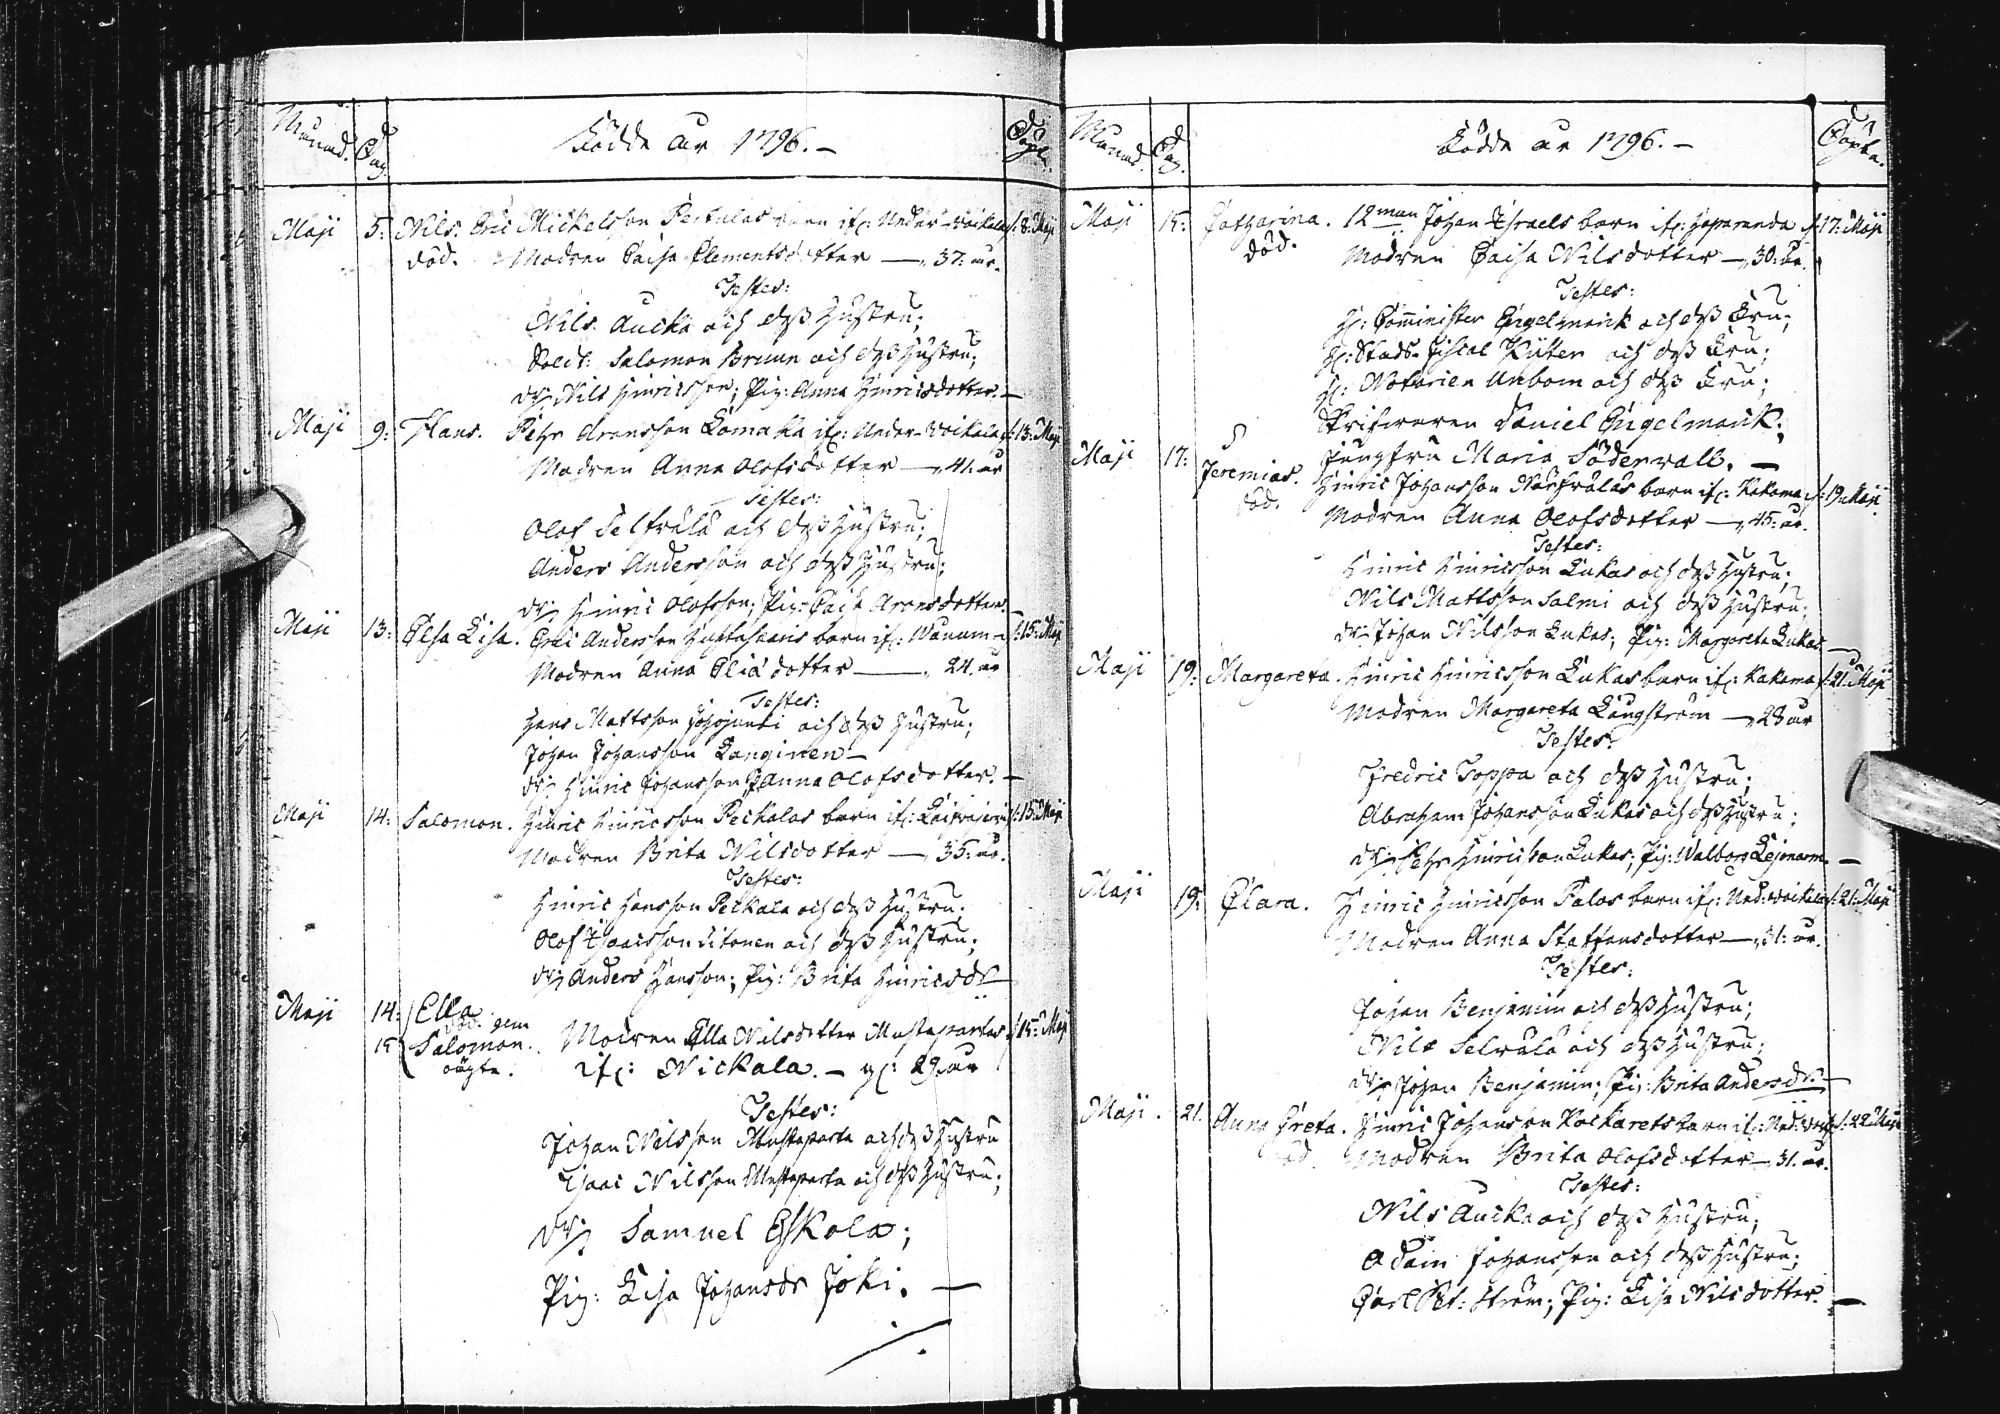 Månad. Dag. Födde år 1796. – Döpt.
Maji 5: Nils. Eric Mickelsson Pertulas barn if: Neder-Woikala d: 8: Maji
död. Modren Caisa Clementsdotter —, 37: år.
Testes:
Nils Aucka och dess Hustru;
Sold: Salomon Brunn och dess Hustru;
dr: Nils Hinricsson; Pig: Anna Hinricsdotter. —
Maji 9: Hans. Pehr Aronsson Lomaka if: Neder-Woikala d: 13: Maji
Modren Anna Olofsdotter —, 41. år
Testes:
Olof och dess Hustru;
Anders Andersson och dess Hustru;
dr: Hinric Olofsson; Pig: Caisa Aronsdotter. —
Maji 13: Elsa Lisa. Eric Andersson barn if: d: 15: Maji
Modren Anna Eliædotter —, 24. år
Testes:
Hans Mattsson och dess Hustru;
Johan Johansson Kanginen —
dr: Hinric Johansson, P: Anna Olofsdotter. —
Maji 14: Salomon. Hinric Hinricsson Peckalas barn if: d: 15: Maji
Modren Brita Nilsdotter — 35: år.
Testes:
Hinric Hansson Peckala och dess Hustru;
Olof Isaacsson Sitonen och dess Hustru;
dr: Anders Hansson; Pig: Brita Hinricsdr —
Maji 14: Ella
död. gem
15 Salomon. Modren Ella Nilsdotter Mustaparta d: 15: Maji
oägta. if: Nickala. – gl: 29. år
Testes:
Johan Nilsson Mustaparta och dess Hustru
Isaac Nilsson Mustaparta och dess Hustru;
dr: Samuel Eskola;
Pig: Lisa Johansdr Joki. —
Månad. Dag. Födde år 1796. – Döpta.
Maji 15: Catharina. 12man Johan Israels barn if: Haparanda d: 17: Maji
död. Modren Caisa Nilsdotter —, 30: år.
Testes:
H: Comminister Engelmark och dess Fru;
H: Stads-Fiscal Küter och dess Fru;
H: Notarien Unbom och dess Fru;
Skrifvaren Daniel Engelmark;
Jungfru Maria Söderwall. —
Maji 17: Jeremias. Hinric Johansson barn if: Kakama d: 19 Maji
död. Modren Anna Olofsdotter —, 45: år.
Testes:
Hinric Hinricsson Lukas och dess Hustru;
Nils Mattsson Salmi och dess Hustru;
dr: Johan Nilsson Lukas; Pig: Margareta Lukas —
Maji 19: Margareta. Hinric Hinricsson Lukas barn if: Kakama d: 21: Maji
Modren Margareta Långström —, 28 år
Testes:
Fredric Toppa och dess Hustru;
Abraham Johansson Lukas och dess Hustru;
dr: Pehr Hinricsson Lukas; Pig: Walborg —
Maji 19: Clara. Hinric Hinricsson Palos barn if: Ned: Woikala d: 21: Maji
Modren Anna Staffansdotter —, 31: år.
Testes:
Johan Benjamin och dess Hustru;
Nils och dess Hustru;
dr: Johan Benjamin; Pig: Brita Andersdr. —
Maji. 21. Anna Greta. Hinric Johansson Kockarets barn if: Ned: Woik. d: 22: Maji
död. Modren Brita Olofsdotter — 31. år.
Testes:
Nils Aucka och dess Hustru;
Adam Johansson och dess Hustru;
Carl Pet: Ström; Pig: Lisa Nilsdotter. —